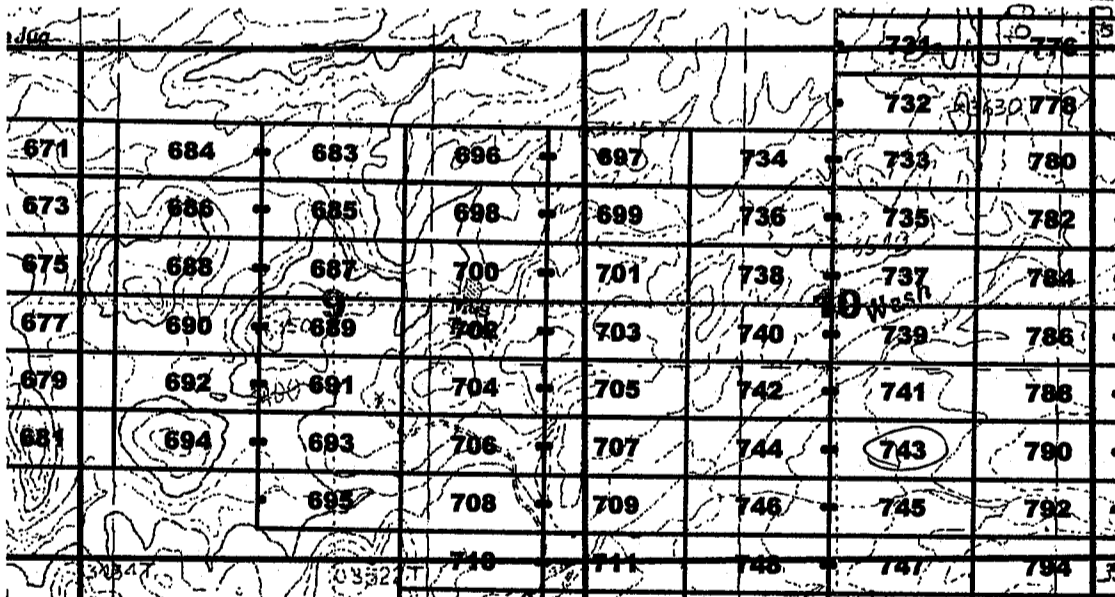 Jug
731 776
732 3630 778
671 684 683 696 697 734 733 780
673 686 685 698 699 736 735 782
675 688 687 700 701 738 737 784
9 10 Wash
677 690 689 702 703 740 739 786
679 692 691 704 705 742 741 788
681 694 693 706 707 744 743 790
695 708 709 746 745 792
710 711 748 747 794